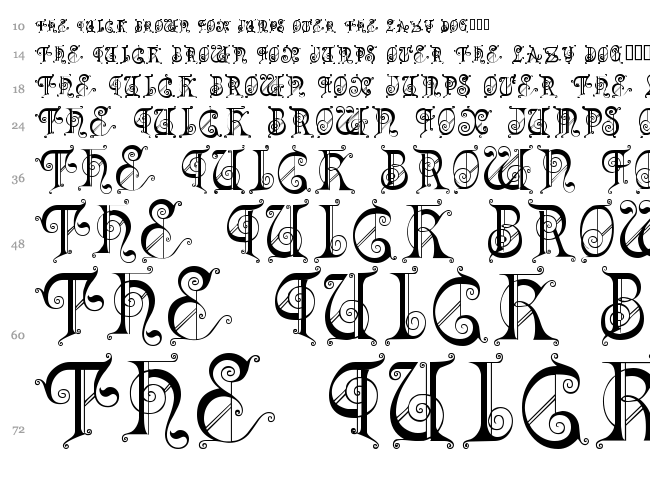 10 THE QUICK BROWN FOX JUMPS OVER THE LAZY DOG
14 THE QUICK BROWN FOX JUMPS OVER THE LAZY DOG
18 THE QUICK BROWN FOX JUMPS OVER THE
24 THE QUICK BROWN FOX JUMPS O
36 THE QUICK BROWN FO
48 THE QUICK BROW
60 THE QUICK B
72 THE QUICK